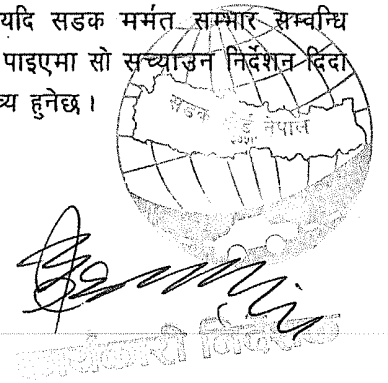 यदि सडक मर्मत सम्भार सम्वन्धि
पाइएमा सो सच्याउन निर्देशन दिदा
व्य हुनेछ ।
सडक बोर्ड नेपाल
कार्यकारी निर्देशक